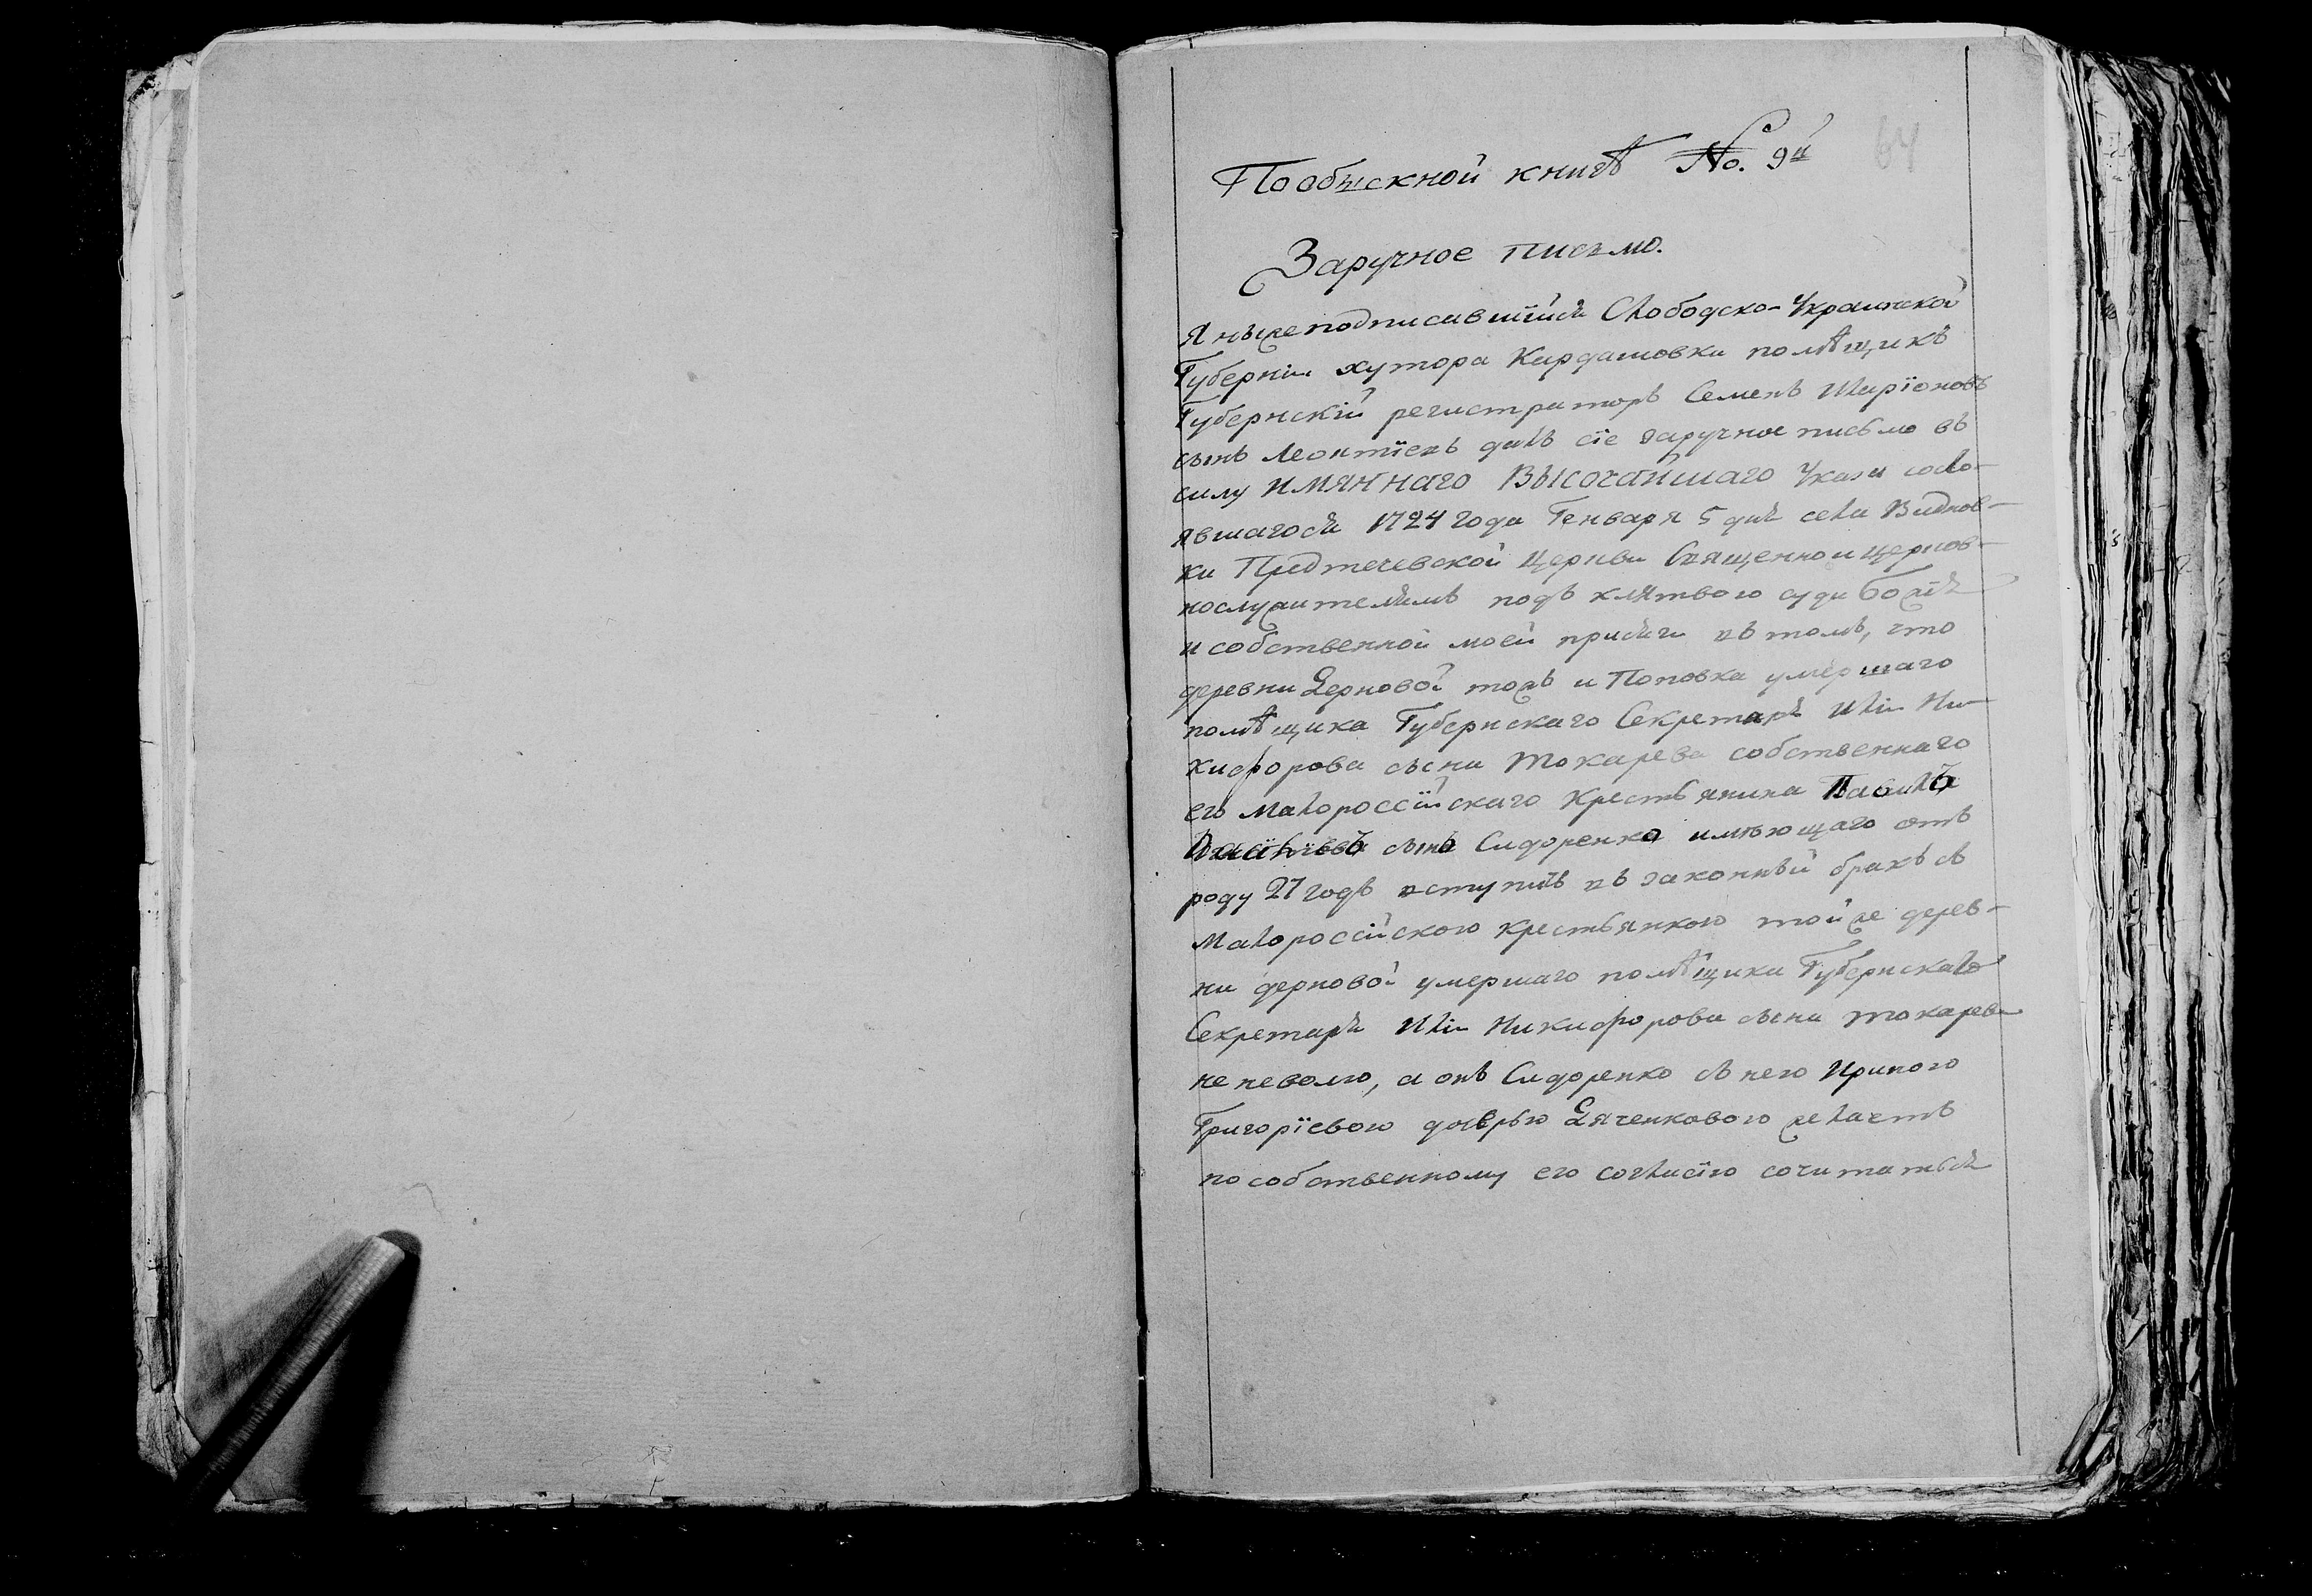 64
Пообыскной книгѣ No. 9й
Заручное письмо.
Я нижеподписавшійся Слободско-Украинской
Губерніи хутора Кардашовки помѣщикъ
Губернскій регистраторъ Семенъ Иларіоновъ
сынъ Леонтіевъ далъ сіе заручное письмо въ
силу ИМЯННАГО ВЫСОЧАЙШАГО Указа состо-
явшагося 1724 года Генваря 5 дня села Видков-
ки Предтечевской церкви Священно и церков-
нослужителямъ подъ клятвою суда Божія
и собственной моей присяги въ томъ, что
деревни Дерновой тожъ и Поповка умершаго
помѣщика Губернскаго Секретаря Иліи Ни-
кифорова сына Токарева собственнаго
его Малороссійскаго Крестьянина Павла
сынъ Сидоренко имѣющаго отъ
роду 27 годъ вступить въ законный бракъ съ
Малороссійскою крестьянкою тойже дерев-
ни дерновой умершаго помѣщика Губернскаго
Секретаря Иліи Никифорова сына Токарева
не неволю, а онъ Сидоренко съ нею Ириною
Григоріевою дочерью Дяченковою желаетъ
по собственному его согласію сочитаться